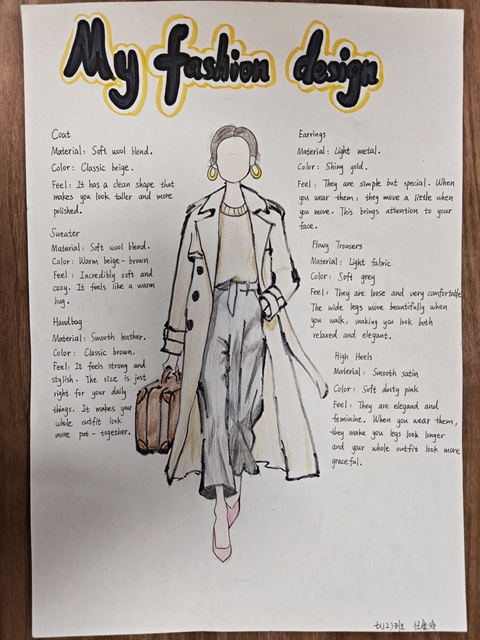 My fashion design
Coat
Material: Soft wool blend.
Color: Classic beige.
Feel: It has a clean shape that
makes you look taller and more
polished.
Sweater
Material: Soft wool blend.
Color: Warm beige-brown
Feel: Incredibly soft and
cozy. It feels like a warm
hug.
Handbag
Material: Smooth leather.
Color: Classic brown.
Feel: It feels strong and
stylish. The size is just
right for your daily
things. It makes your
whole outfit look
more put-together.
Earrings
Material: Light metal.
Color: Shiny gold.
Feel: They are simple but special. When
you wear them, they move a little when
you move. This brings attention to your
face.
Flowy Trousers
Material: Light fabric
Color: Soft grey
Feel: They are loose and very comfortable
The wide legs move beautifully when
you walk, making you look both
relaxed and elegant.
High Heels
Material: Smooth satin
Color: Soft dusty pink
Feel: They are elegand and
feminine. When you wear them,
they make you legs look longer
and your whole outfit look more
graceful.
七(2)班